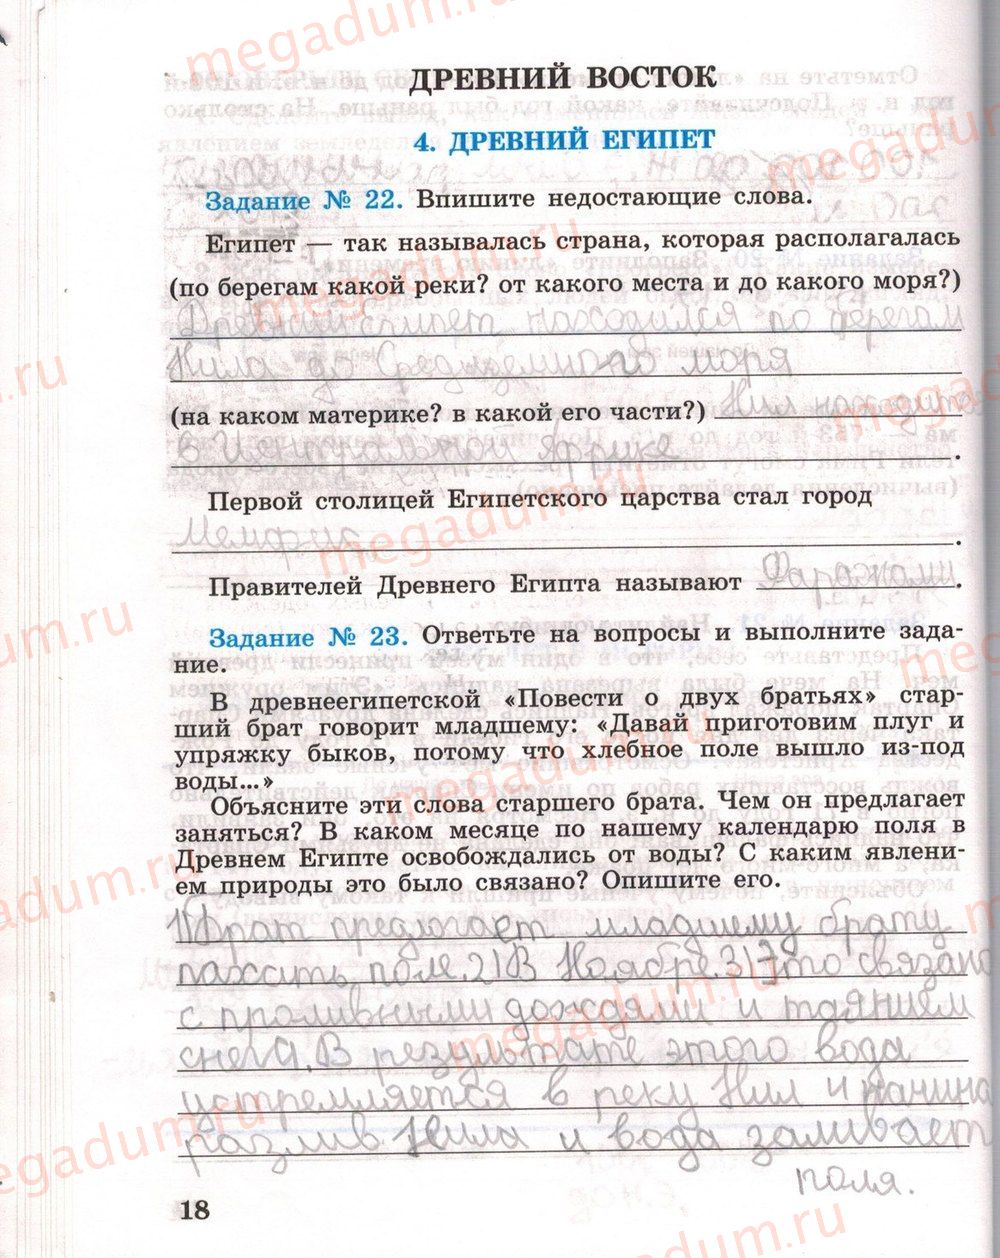 ДРЕВНИЙ ВОСТОК
4. ДРЕВНИЙ ЕГИПЕТ
Задание № 22. Впишите недостающие слова.
Египет — так называлась страна, которая располагалась
(по берегам какой реки? от какого места и до какого моря?)
Древний египет находился по берегам
Нила до Средиземного моря
(на каком материке? в какой его части?) Нил находится
в Центральной Африке.
Первой столицей Египетского царства стал город
Мемфис.
Правителей Древнего Египта называют Фараонами.
Задание № 23. Ответьте на вопросы и выполните зада-
ние.
В древнеегипетской «Повести о двух братьях» стар-
ший брат говорит младшему: «Давай приготовим плуг и
упряжку быков, потому что хлебное поле вышло из-под
воды...»
Объясните эти слова старшего брата. Чем он предлагает
заняться? В каком месяце по нашему календарю поля в
Древнем Египте освобождались от воды? С каким явлени-
ем природы это было связано? Опишите его.
1) Брат предлогает младшему брату
пахать поле. 2) В Ноябре. 3) Это связано
с проливными дождями и таянием
снега. В результате этого вода
устремляется в реку Нил и начина
разлив Нила и вода заливает
поля.
18
megadum.ru
megadum.ru
megadum.ru
megadum.ru
megadum.ru
megadum.ru
megadum.ru
megadum.ru
megadum.ru